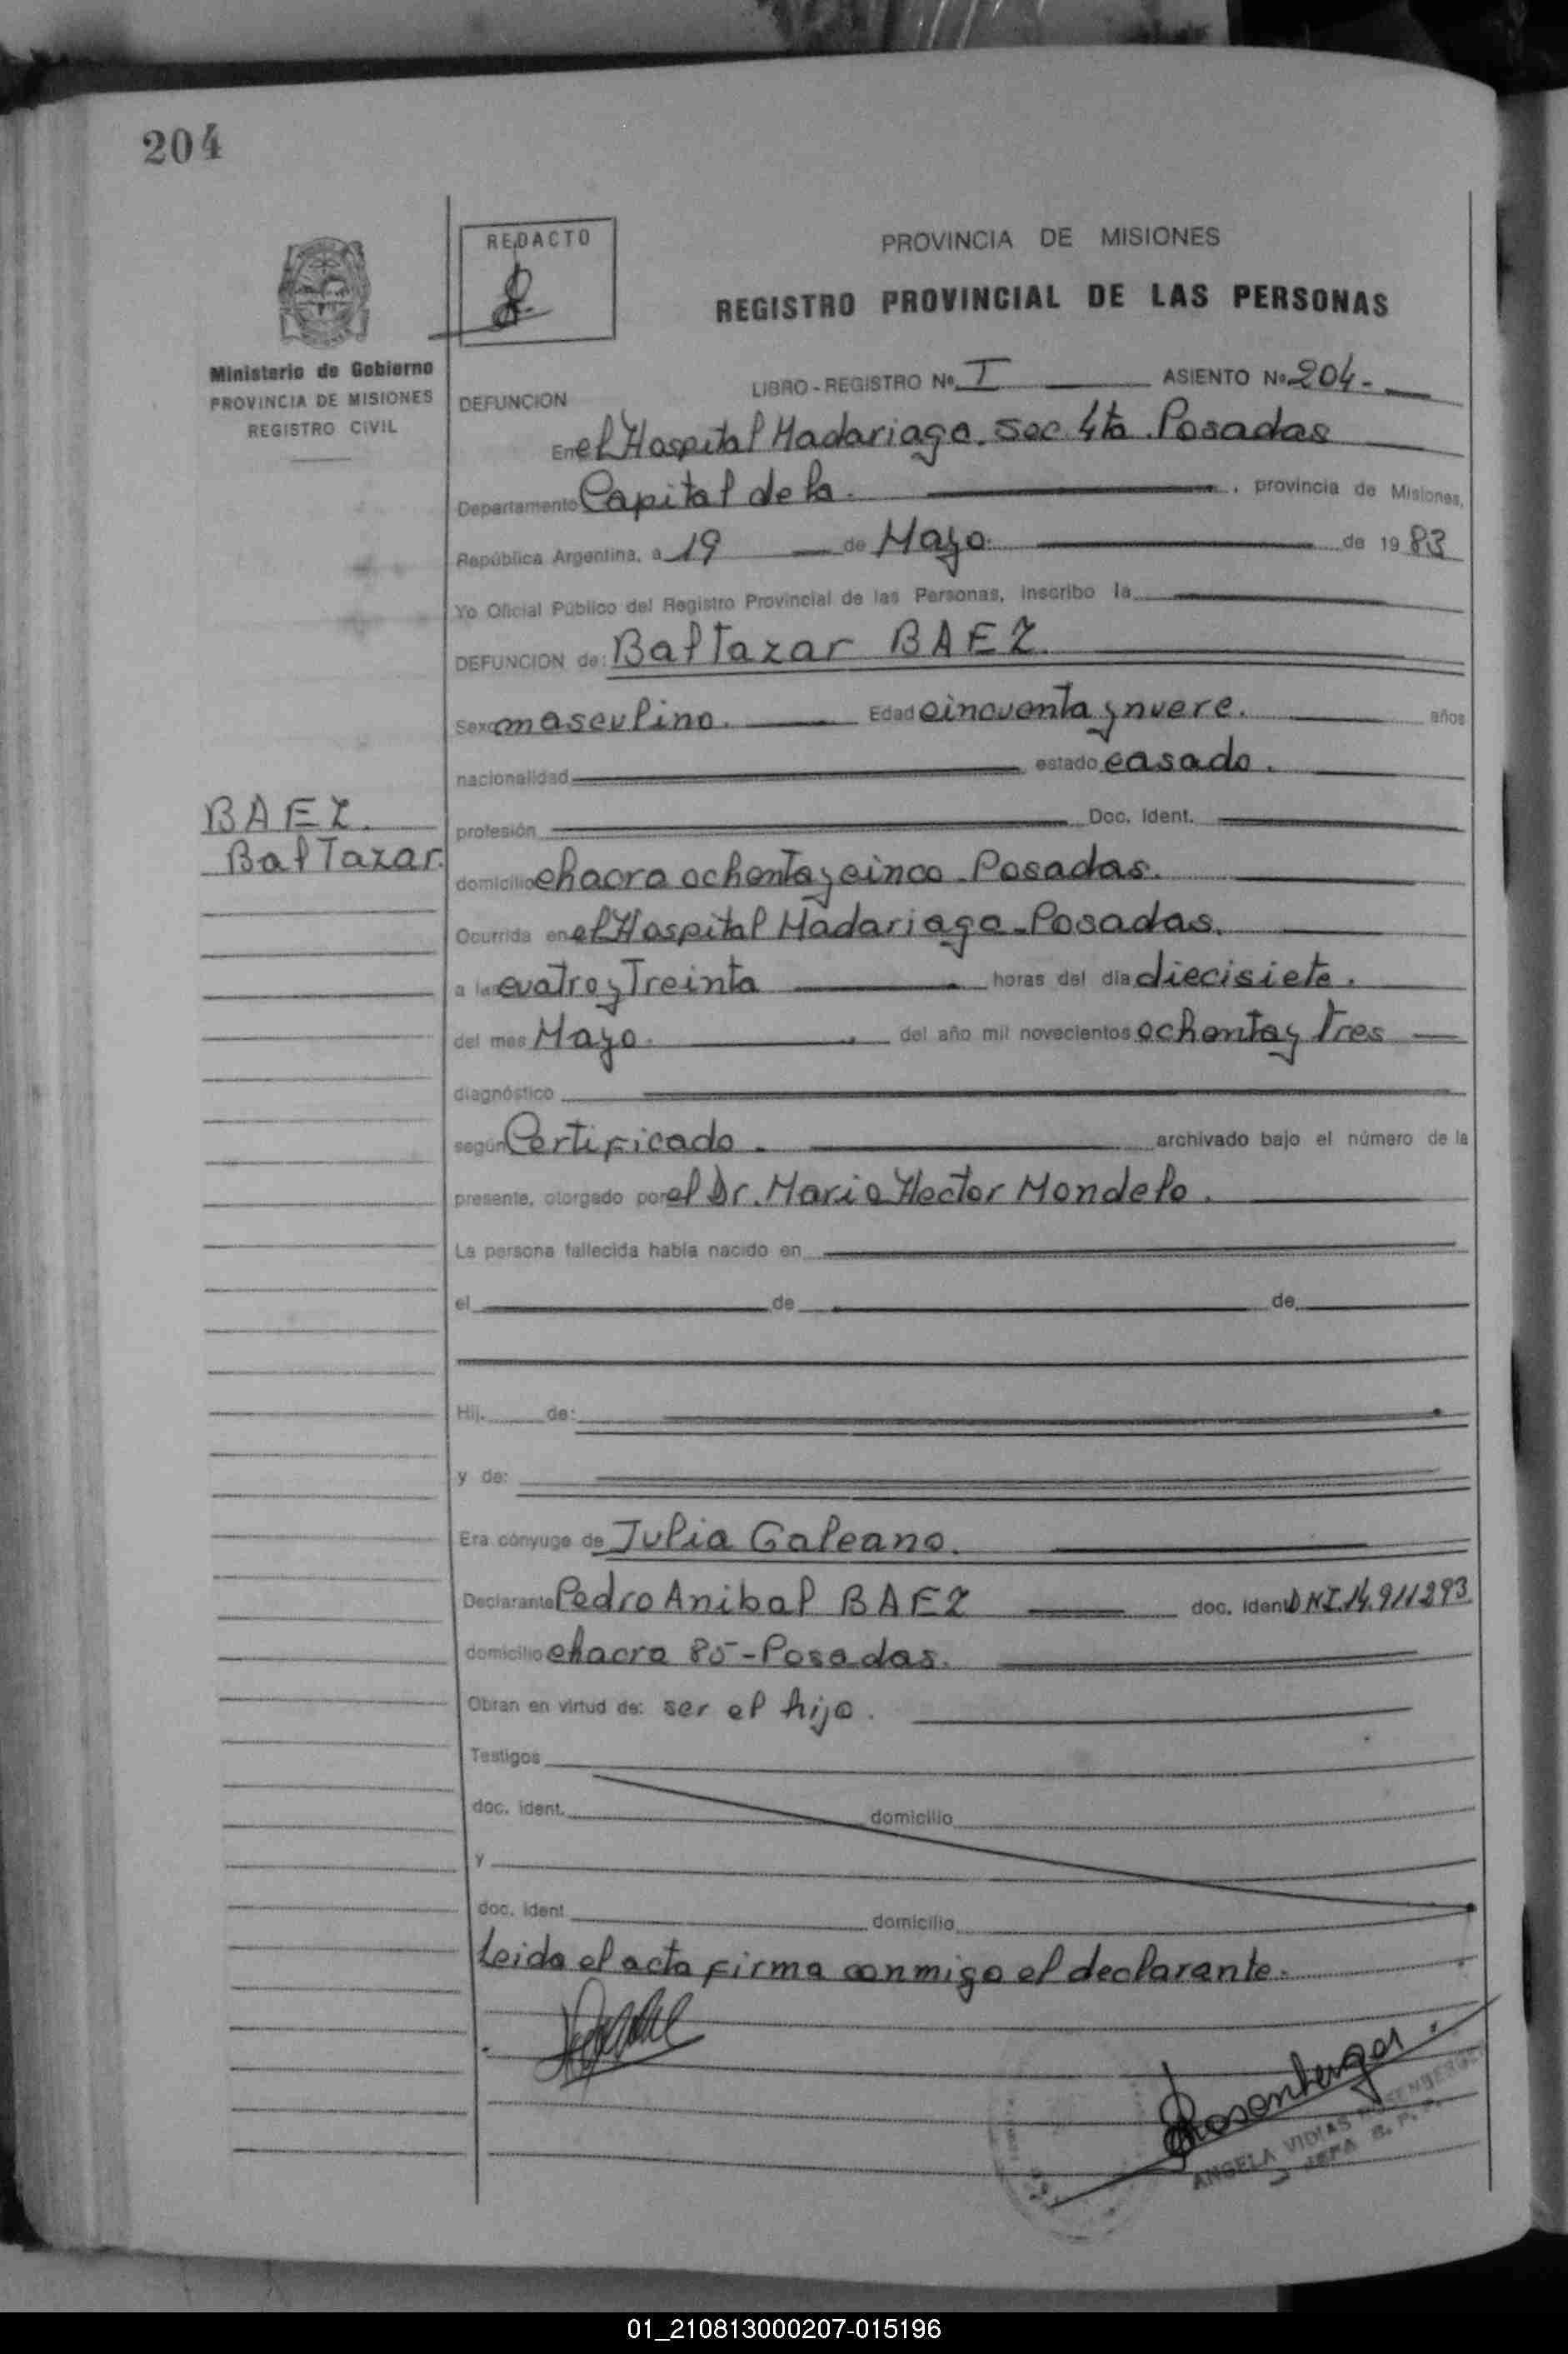 204
REDACTO
PROVINCIA DE MISIONES
REGISTRO PROVINCIAL DE LAS PERSONAS
Ministerio de Gobierno
PROVINCIA DE MISIONES
REGISTRO CIVIL
LIBRO - REGISTRO Nº I ASIENTO Nº 204 -
DEFUNCION
En el Hospital Madariaga. Sec 4ta. Posadas
Departamento Capital de la. , provincia de Misiones,
República Argentina, a 19 de Mayo. de 19 83
Yo Oficial Público del Registro Provincial de las Personas, inscribo la
DEFUNCION de: Baltazar BAEZ.
Sexo masculino. Edad cincuenta y nueve. años
nacionalidad estado casado.
profesión Doc. Ident.
BAEZ.
Baltazar.
domicilio chacra ochenta y cinco - Posadas.
Ocurrida en el Hospital Madariaga - Posadas.
a las cuatro y Treinta horas del día diecisiete.
del mes Mayo. del año mil novecientos ochenta y tres
diagnóstico
según Certificado. archivado bajo el número de la
presente, otorgado por el Dr. Mario Hector Mondelo.
La persona fallecida había nacido en
el de de
Hij. de:
y de:
Era cónyuge de Julia Galeano.
Declarante Pedro Anibal BAEZ doc. Ident. DNI.14.911293.
domicilio chacra 85 - Posadas.
Obran en virtud de: ser el hijo.
Testigos
doc. ident. domicilio
y
doc. ident domicilio
Leida el acta firma conmigo el declarante.
Rosenberger.
ANGELA VIDIAS ROSENBERGER
JEFA R. P. P.
01_210813000207-015196